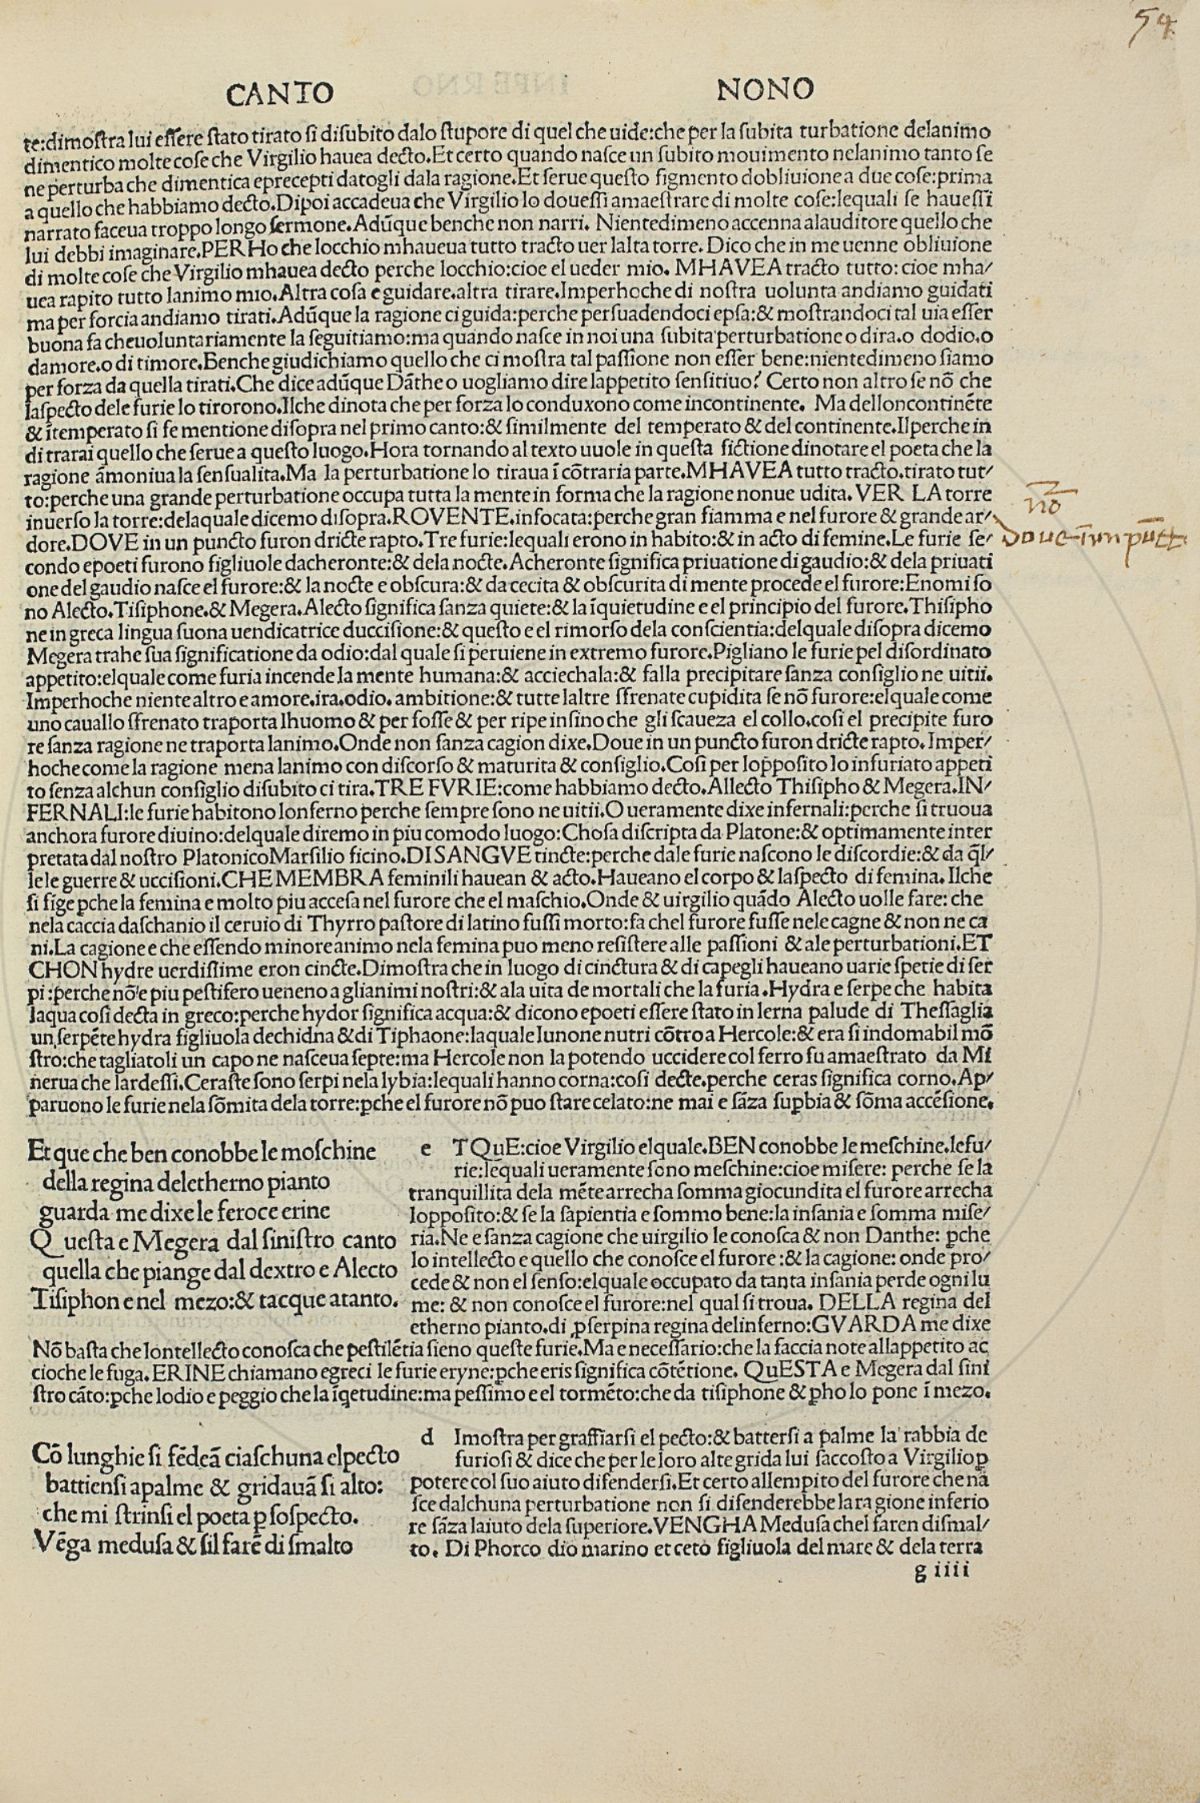 54
CANTO NONO
te:dimoſtra lui eſſere ſtato tirato ſi diſubito dalo ſtupore di quel che uide:che per la ſubita turbatione delanimo
dimentico molte coſe che Virgilio hauea decto.Et certo quando naſce un ſubito mouimento nelanimo tanto ſe
ne perturba che dimentica eprecepti datogli dala ragione.Et ſerue queſto figmento dobliuione a due coſe:prima
a quello che habbiamo decto.Dipoi accadeua che Virgilio lo doueſſi amaeſtrare di molte coſe:lequali ſe haueſſi
narrato faceua troppo longo ſermone.Adũque benche non narri. Nientedimeno accenna alauditore quello che
lui debbi imaginare.PERHo che locchio mhaueua tutto tracto uer lalta torre. Dico che in me uenne obliuione
di molte coſe che Virgilio mhauea decto perche locchio:cioe el ueder mio. MHAVEA tracto tutto: cioe mha/
uea rapito tutto lanimo mio.Altra coſa e guidare.altra tirare.Imperhoche di noſtra uolunta andiamo guidati
ma per forcia andiamo tirati.Adũque la ragione ci guida:perche perſuadendoci epſa:& moſtrandoci tal uia eſſer
buona fa cheuoluntariamente la ſeguitiamo:ma quando naſce in noi una ſubita perturbatione o dira.o dodio.o
damore.o di timore.Benche giudichiamo quello che ci moſtra tal paſſione non eſſer bene:nientedimeno ſiamo
per forza da quella tirati.Che dice adũque Dãthe o uogliamo dire lappetito ſenſitiuo? Certo non altro ſe nõ che
laſpecto dele furie lo tirorono.Ilche dinota che per forza lo conduxono come incontinente. Ma delloncontinẽte
& ĩtemperato ſi fe mentione diſopra nel primo canto:& ſimilmente del temperato & del continente.Ilperche in
di trarai quello che ſerue a queſto luogo.Hora tornando al texto uuole in queſta fictione dinotare el poeta che la
ragione ãmoniua la ſenſualita.Ma la perturbatione lo tiraua ĩ cõtraria parte.MHAVEA tutto tracto.tirato tut/
to:perche una grande perturbatione occupa tutta la mente in forma che la ragione nonue udita. VER LA torre
inuerſo la torre:delaquale dicemo diſopra.ROVENTE.infocata:perche gran fiamma e nel furore & grande ar/
dore.DOVE in un puncto furon dricte rapto. Tre furie:lequali erono in habito:& in acto di femine.Le furie ſe/
condo epoeti furono figliuole dacheronte:& dela nocte. Acheronte ſignifica priuatione di gaudio:& dela priuati
one del gaudio naſce el furore:& la nocte e obſcura:& da cecita & obſcurita di mente procede el furore:Enomi ſo
no Alecto.Tiſiphone.& Megera.Alecto ſignifica ſanza quiete:& la ĩquietudine e el principio del furore.Thiſipho
ne in greca lingua ſuona uendicatrice duccisione:& queſto e el rimorſo dela conſcientia:delquale diſopra dicemo
Megera trahe ſua ſignificatione da odio:dal quale ſi peruiene in extremo furore.Pigliano le furie pel diſordinato
appetito:elquale come furia incende la mente humana:& acciechala:& falla precipitare ſanza conſiglio ne uitii.
Imperhoche niente altro e amore.ira.odio. ambitione:& tutte laltre ſfrenate cupidita ſe nõ furore:elquale come
uno cauallo ſfrenato traporta lhuomo & per foſſe & per ripe inſino che gli ſcaueza el collo.coſi el precipite furo
re ſanza ragione ne traporta lanimo.Onde non ſanza cagion dixe.Doue in un puncto furon dricte rapto. Imper/
hoche come la ragione mena lanimo con diſcorſo & maturita & conſiglio.Coſi per loppoſito lo infuriato appeti
to ſenza alchun conſiglio diſubito ci tira. TRE FVRIE:come habbiamo decto.Allecto Thiſipho & Megera.IN/
FERNALI:le furie habitono lonferno perche ſempre ſono ne uitii.O ueramente dixe infernali:perche ſi truoua
anchora furore diuino:delquale diremo in piu comodo luogo:Choſa diſcripta da Platone:& optimamente inter
pretata dal noſtro Platonico Marſilio ficino.DISANGVE tincte:perche dale furie naſcono le diſcordie:& da q̃l/
le le guerre & ucciſioni.CHE MEMBRA feminili hauean & acto.Haueano el corpo & laſpecto di femina. Ilche
ſi fige pche la femina e molto piu acceſa nel furore che el maſchio.Onde & uirgilio quãdo Alecto uolle fare: che
nela caccia daſchanio il ceruio di Thyrro paſtore di latino fuſſi morto:fa chel furore fuſſe nele cagne & non ne ca
ni.La cagione e che eſſendo minore animo nela femina puo meno reſiſtere alle paſſioni & ale perturbationi.ET
CHON hydre uerdiſſime eron cincte.Dimoſtra che in luogo di cinctura & di capegli haueano uarie ſpetie di ſer
pi:perche nõ e piu peſtifero ueneno a glianimi noſtri:& ala uita de mortali che la furia.Hydra e ſerpe che habita
laqua coſi decta in greco:perche hydor ſignifica acqua:& dicono epoeti eſſere ſtato in lerna palude di Theſſaglia
un ſerpẽte hydra figliuola dechidna & di Tiphaone:laquale Iunone nutri cõtro a Hercole:& era ſi indomabil mõ
ſtro:che tagliatoli un capo ne naſceua ſepte:ma Hercole non la potendo uccidere col ferro fu amaeſtrato da Mi
nerua che lardeſſi.Ceraſte ſono ſerpi nela lybia:lequali hanno corna:coſi decte.perche ceras ſignifica corno.Ap/
paruono le furie nela ſõmita dela torre:pche el furore nõ puo ſtare celato:ne mai e ſãza ſupbia & ſõma accẽſione.
nõ
doue in un pũtt
Et que che ben conobbe le moſchine
della regina deletherno pianto
guarda me dixe le feroce erine
Queſta e Megera dal ſiniſtro canto
quella che piange dal dextro e Alecto
Tiſiphon e nel mezo:& tacque atanto.
e TQuE:cioe Virgilio elquale.BEN conobbe le meſchine.lefu/
rie:lequali ueramente ſono meſchine:cioe miſere: perche ſe la
tranquillita dela mẽte arrecha ſomma giocundita el furore arrecha
loppoſito:& ſe la ſapientia e ſommo bene:la inſania e ſomma miſe/
ria.Ne e ſanza cagione che uirgilio le conoſca & non Danthe: pche
lo intellecto e quello che conoſce el furore:& la cagione: onde pro/
cede & non el ſenſo:elquale occupato da tanta inſania perde ogni lu
me: & non conoſce el furore:nel qual ſi troua. DELLA regina del
etherno pianto.di pſerpina regina delinferno:GVARDA me dixe
Nõ baſta che lontellecto conoſca che peſtilẽtia ſieno queſte furie.Ma e neceſſario:che la faccia note allappetito ac
cioche le fuga. ERINE chiamano egreci le furie eryne:pche eris ſignifica cõtẽtione. QuESTA e Megera dal ſini
ſtro cãto:pche lodio e peggio che la ĩqetudine:ma peſſimo e el tormẽto:che da tiſiphone & pho lo pone ĩ mezo.
Cõ lunghie ſi fẽdeã ciaſchuna elpecto
battienſi apalme & gridauã ſi alto:
che mi ſtrinſi el poeta p ſoſpecto.
Vẽga meduſa & ſil farẽ di ſmalto
d Imoſtra per graffiarſi el pecto:& batterſi a palme la rabbia de
furioſi & dice che per le loro alte grida lui ſaccoſto a Virgilio p
potere col ſuo aiuto difenderſi.Et certo allempito del furore che nã
ſce dalchuna perturbatione non ſi difenderebbe la ragione inferio
re ſãza laiuto dela ſuperiore.VENGHA Meduſa chel faren diſmal/
to. Di Phorco dio marino et ceto figliuola del mare & dela terra
g iiii